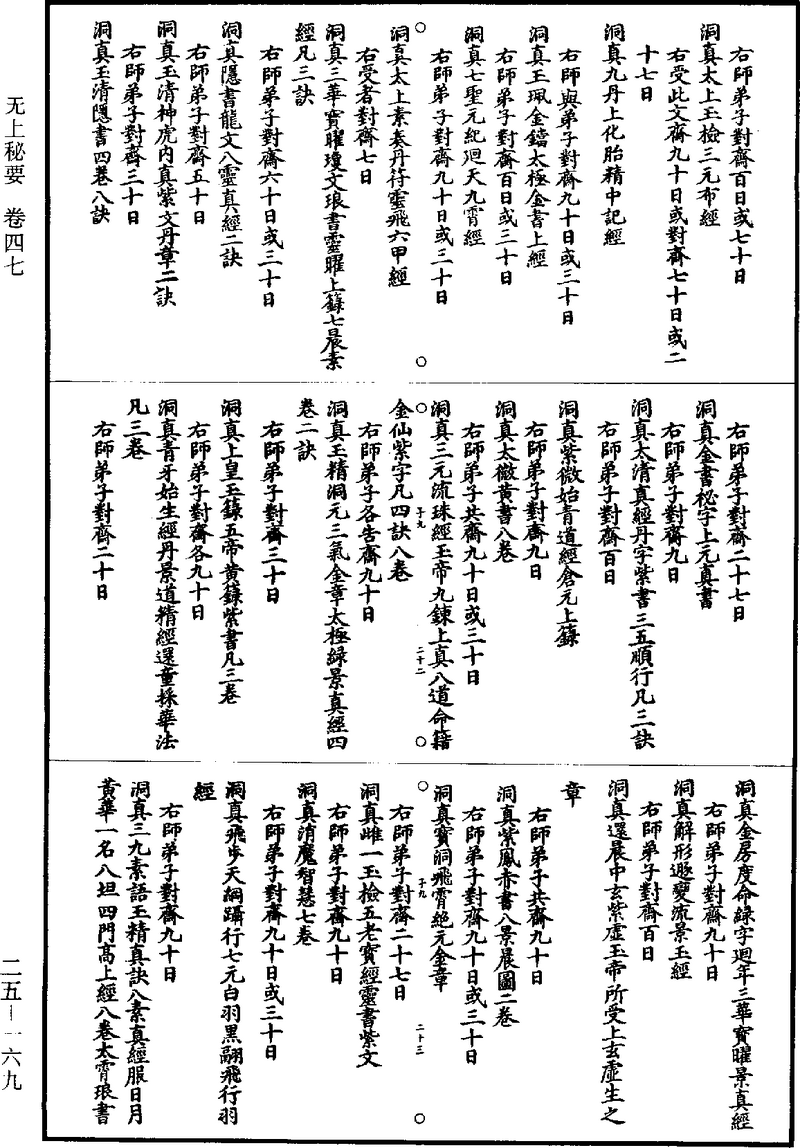 右師弟子對齋百日或七十日
洞真太上玉檢三元布經
右受此文齋九十日或對齋七十日或二
十七日
洞真九丹上化胎精中記經
右師與弟子對齋九十日或三十日
洞真玉珮金鐺太極金書上經
右師弟子對齋百日或三十日
洞真七聖元紀迴天九霄經
右師弟子對齋九十日或三十日
洞真太上素奏丹符靈飛六甲經
右受者對齋七日
洞真三華寶曜瓊文琅書靈曜上籙七晨素
經凡三訣
右師弟子對齋六十日或三十日
洞真隱書龍文八靈真經二訣
右師弟子對齋五十日
洞真玉清神虎內真紫文丹章二訣
右師弟子對齋三十日
洞真玉清隱書四卷八訣
右師弟子對齋二十七日
洞真金書祕字上元真書
右師弟子對齋九日
洞真太清真經丹字紫書三五順行凡三訣
右師弟子對齋百日
洞真紫微始青道經倉元上籙
右師弟子對齋九日
洞真太微黃書八卷
右師弟子共齋九十日或三十日
洞真三元流珠經玉帝九鍊上真八道命籍
子九
二十二
金仙紫字凡四訣八卷
右師弟子各告齋九十日
洞真玉精洞元三氣金章太極綠景真經四
卷二訣
右師弟子對齋三十日
洞真上皇玉籙五帝黃籙紫書凡三卷
右師弟子對齋各九十日
洞真青牙始生經丹景道精經還童採華法
凡三卷
右師弟子對齋二十日
洞真金房度命綠字迴年三華寶曜景真經
右師弟子對齋九十日
洞真解形遯變流景玉經
右師弟子對齋百日
洞真還晨中玄紫虛玉帝所受上玄虛生之
章
右師弟子共齋九十日
洞真紫鳳赤書八景晨圖二卷
右師弟子對齋九十日或三十日
洞真寶洞飛霄絕元金章
子九
二十三
右師弟子對齋二十七日
洞真雌一玉檢五老寶經靈書紫文
右師弟子對齋九十日
洞真消魔智慧七卷
右師弟子對齋九十日或三十日
洞真飛步天綱躡行七元白羽黑翮飛行羽
經
右師弟子對齋九十日
洞真三九素語玉精真訣八素真經服日月
黃華一名八坦四門高上經八卷太霄琅書
无上秘要 卷四七
二五—一六九